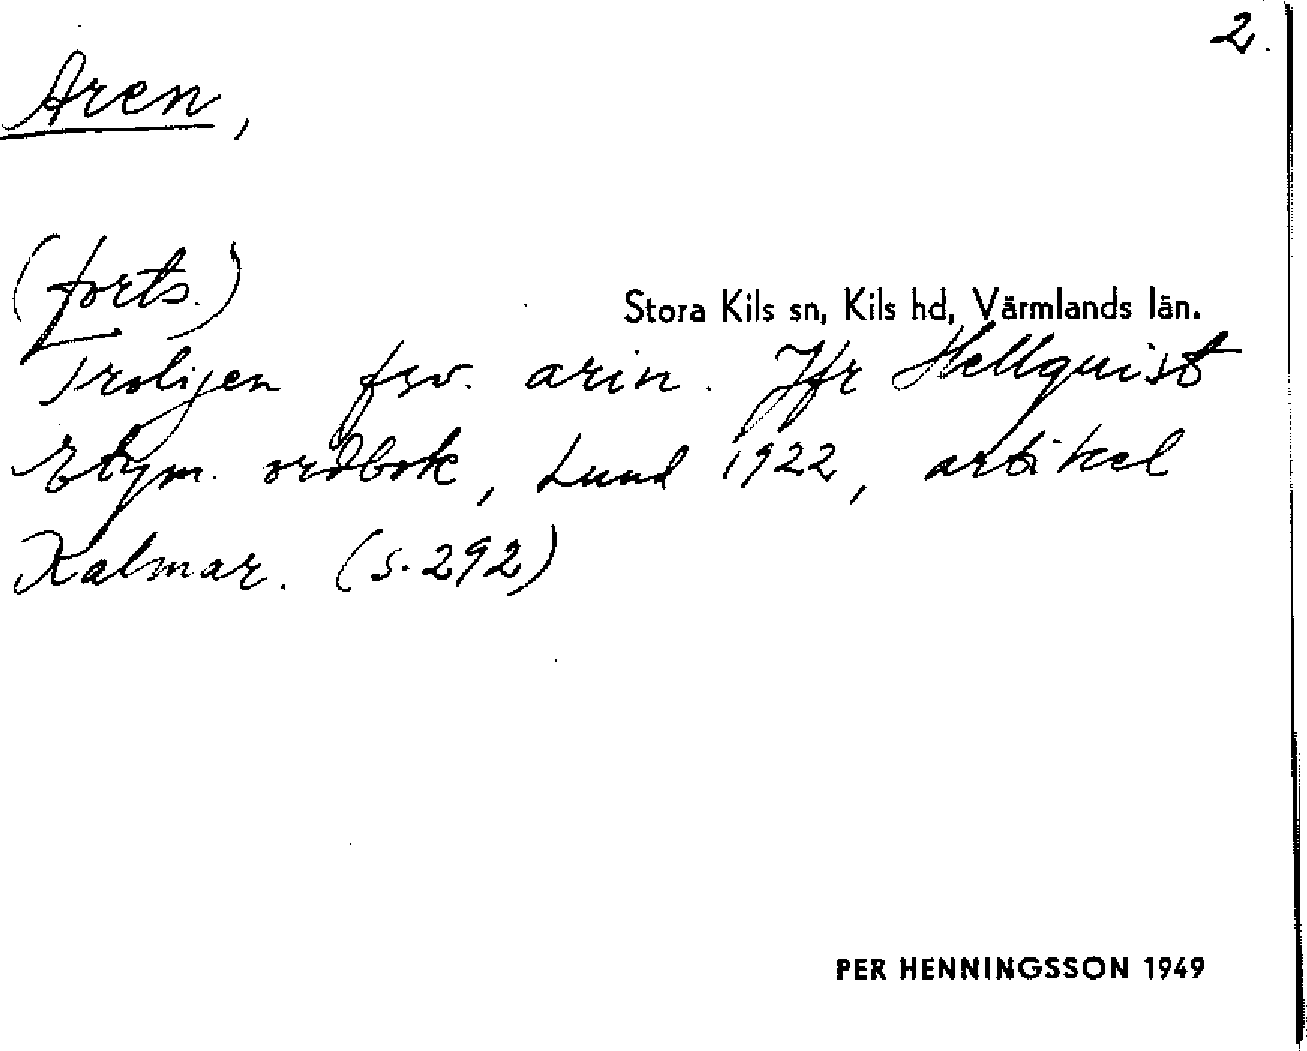 2.
Aren,
(forts.)
Stora Kils sn, Kils hd, Värmlands län.
Troligen fsv. arin. Jfr Hellquist
Etym. ordbok, Lund 1922, artikel
Kalmar. (s. 292)
PER HENNINGSSON 1949